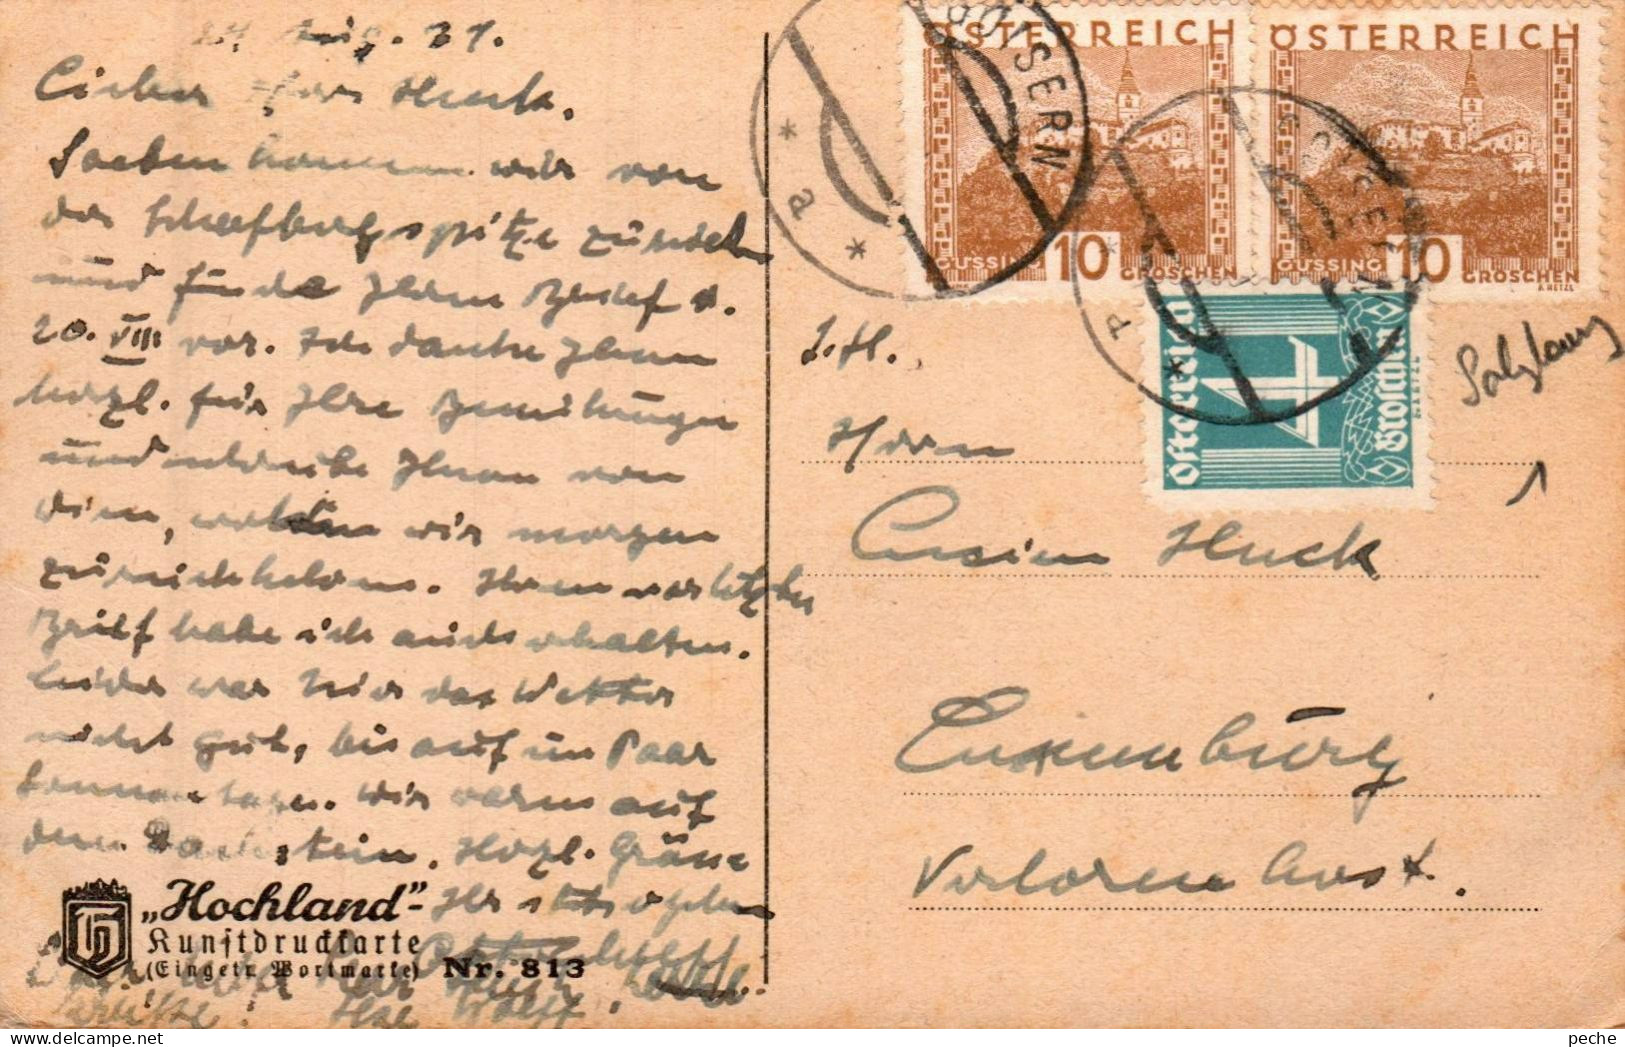 24 Aug. 31.
Lieber Herr Huck.
Soeben kommen wir von
der Schafbergspitze zurück
und finde Ihren Brief v.
20. VIII vor. Ich danke Ihnen
herzl. für Ihre Bemühungen
und schreibe Ihnen von
Wien, wohin wir morgen
zurückkehren. Ihren vorletzten
Brief habe ich auch erhalten.
Leider war hier das Wetter
nicht gut, bis auf ein Paar
Sonnentage. Wir waren auf
dem Dachstein. Herzl. Grüsse
Ihr stets ergebener
Herr Huck
Ilse Wolff.
„Hochland"-
Kunstdruckkarte
(Eingetr. Wortmarke) Nr. 813
GOISERN
* a *
ÖSTERREICH
GÜSSING 10 GROSCHEN
ÖSTERREICH
GÜSSING 10 GROSCHEN
A. RETZL
GOISERN
* a *
Österreich 4 Groschen
Salzburg
S. H.
Herrn
Lucien Huck
Luxemburg
Verlorenkost.
peche